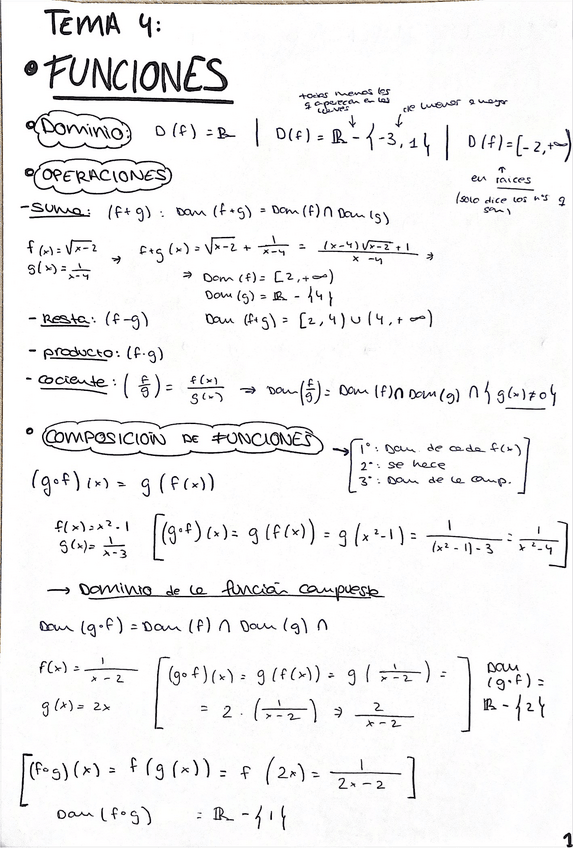 TEMA 4:
• FUNCIONES
todos menos los q aparecen en las llaves
de menor a mayor
• Dominio: D(f) = ℝ | D(f) = ℝ - {-3, 1} | D(f) = [-2, +∞)
en raíces
(solo dice los nºs q son)
• OPERACIONES
- suma: (f+g) : Dom (f+g) = Dom(f) ∩ Dom(g)
f(x) = √x-2 → f+g (x) = √x-2 + 1/x-4 = (x-4)√x-2 + 1/x-4 ⇒
g(x) = 1/x-4
⇒ Dom (f) = [2, +∞)
Dom (g) = ℝ - {4}
- Resta: (f-g) Dom (f+g) = [2, 4) ∪ (4, +∞)
- producto: (f·g)
- cociente: (f/g) = f(x)/g(x) ⇒ Dom(f/g) = Dom (f) ∩ Dom(g) ∩ { g(x) ≠ 0 }
• COMPOSICIÓN DE FUNCIONES → 1º: Dom de cada f(x)
2º: se hace
3º: Dom de la comp.
(g∘f)(x) = g(f(x))
f(x) = x²-1
g(x) = 1/x-3
[(g∘f)(x) = g(f(x)) = g(x²-1) = 1/(x²-1)-3 = 1/x²-4]
→ Dominio de la función compuesta
Dom (g∘f) = Dom (f) ∩ Dom (g) ∩
f(x) = 1/x-2 [(g∘f)(x) = g(f(x)) = g(1/x-2) =
g(x) = 2x = 2 · (1/x-2) ⇒ 2/x-2]
Dom (g∘f) = ℝ - {2}
[(f∘g)(x) = f(g(x)) = f(2x) = 1/2x-2]
Dom (f∘g) = ℝ - {1}
1